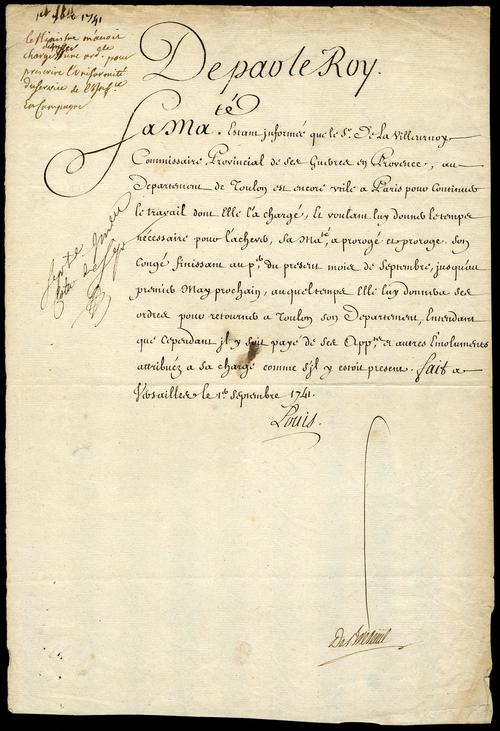 1er 7bre 1741
le Ministre m'avoit
chargé d'une ord.ce pour
prescrire l'uniformité
du service de l'Inf.rie
En Campagne
De par le Roy.
Sa Ma.té Estant informée que le S.r De La Villeurnoy
Commissaire Provincial de ses Guerres en Provence, au
Departement de Toulon est encore utile a Paris pour Continuer
le travail dont Elle l'a chargé, Et voulant luy donner le temps
necessaire pour l'achever, Sa Ma.té a prorogé et proroge son
Congé finissant au p.er du present mois de Septembre, jusqu'au
premier May prochain, auquel temps Elle luy donnera ses
ordres pour retourner a Toulon son Departement, Entendant
que Cependant jl y soit payé de ses App.tens et autres Emolumens
attribuéz a sa charge comme s'jl y estoit present. fait a
Versailles le 1.er Septembre 1741.
Louis.